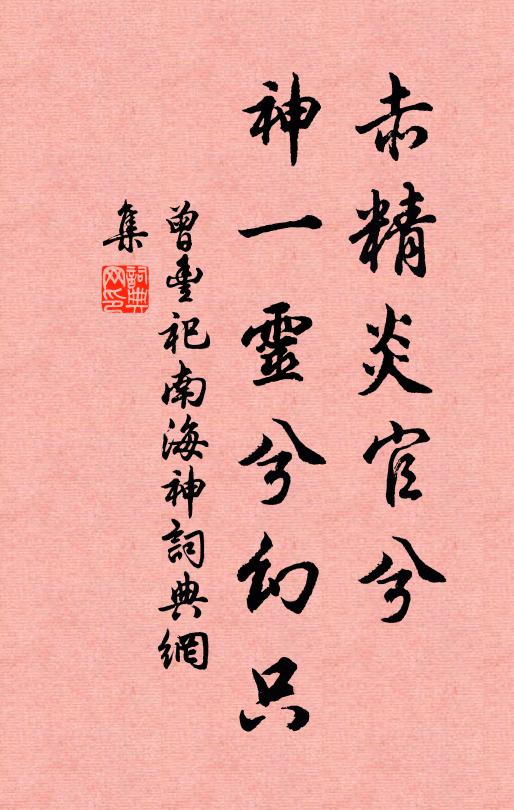 赤精炎官兮
神一靈兮幻只
曾豐祀南海神詞典網
集
詞典
网印